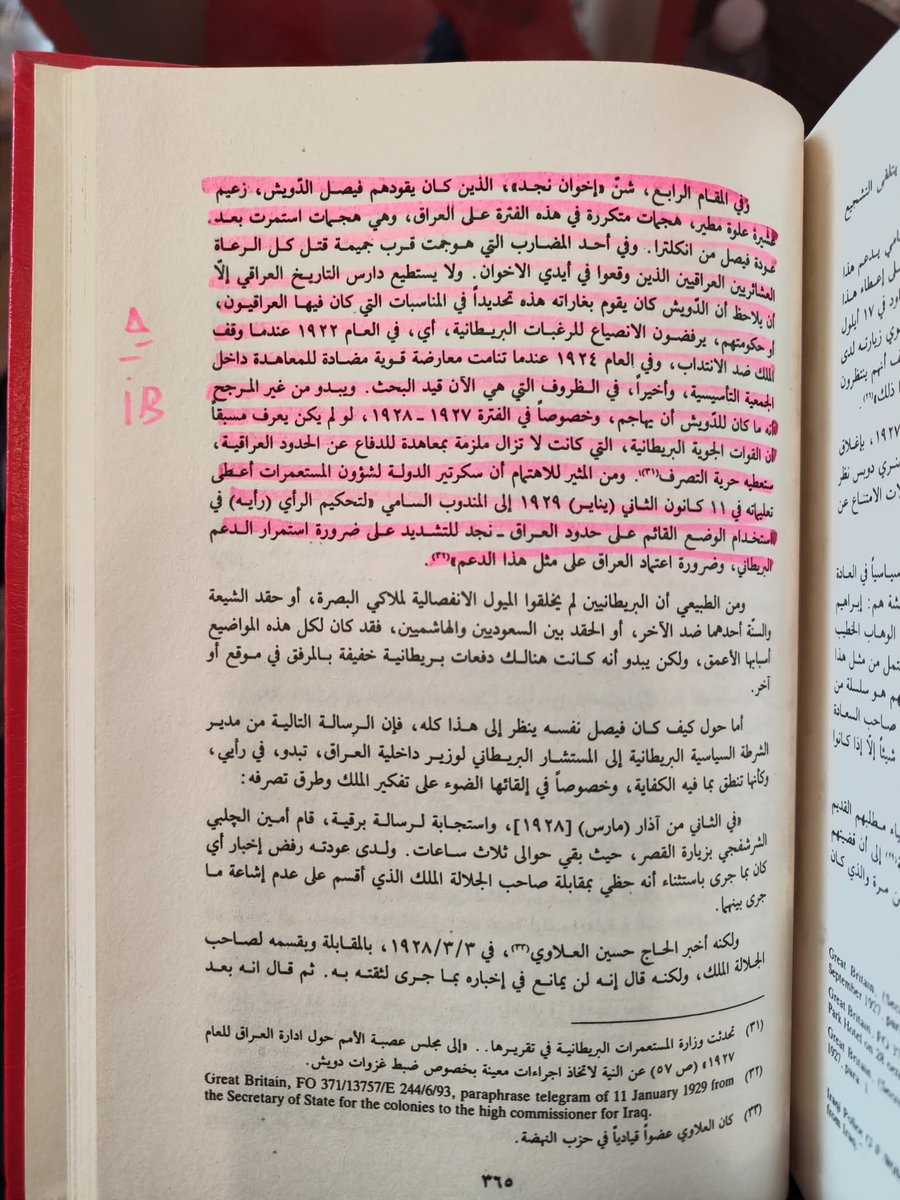 وفي المقام الرابع، شنّ «إخوان نجد»، الذين كان يقودهم فيصل الدّويش، زعيم
عشيرة علوة مطير، هجمات متكررة في هذه الفترة على العراق، وهي هجمات استمرت بعد
عودة فيصل من انكلترا. وفي أحد المضارب التي هوجمت قرب جميمة قتل كل الرعاة
العشائريين العراقيين الذين وقعوا في أيدي الاخوان. ولا يستطيع دارس التاريخ العراقي إلّا
أن يلاحظ أن الدّويش كان يقوم بغاراته هذه تحديداً في المناسبات التي كان فيها العراقيون،
أو حكومتهم، يرفضون الانصياع للرغبات البريطانية، أي، في العام ١٩٢٢ عندما وقف
الملك ضد الانتداب، وفي العام ١٩٢٤ عندما تنامت معارضة قوية مضادة للمعاهدة داخل
الجمعية التأسيسية، وأخيراً، في الظروف التي هي الآن قيد البحث. ويبدو من غير المرجح
أنه ما كان للدّويش أن يهاجم، وخصوصاً في الفترة ١٩٢٧ ــ ١٩٢٨، لو لم يكن يعرف مسبقاً
أن القوات الجوية البريطانية، التي كانت لا تزال ملزمة بمعاهدة للدفاع عن الحدود العراقية،
ستعطيه حرية التصرف(٣١). ومن المثير للاهتمام أن سكرتير الدولة لشؤون المستعمرات أعطى
تعليماته في ١١ كانون الثاني (يناير) ١٩٢٩ إلى المندوب السامي «لتحكيم الرأي (رأيه) في
استخدام الوضع القائم على حدود العراق ــ نجد للتشديد على ضرورة استمرار الدعم
البريطاني، وضرورة اعتماد العراق على مثل هذا الدعم»(٣٢).
ومن الطبيعي أن البريطانيين لم يخلقوا الميول الانفصالية لملاكي البصرة، أو حقد الشيعة
والسنّة أحدهما ضد الآخر، أو الحقد بين السعوديين والهاشميين، فقد كان لكل هذه المواضيع
أسبابها الأعمق، ولكن يبدو أنه كانت هنالك دفعات بريطانية خفيفة بالمرفق في موقع أو
آخر.
أما حول كيف كان فيصل نفسه ينظر إلى هذا كله، فإن الرسالة التالية من مدير
الشرطة السياسية البريطانية إلى المستشار البريطاني لوزير داخلية العراق، تبدو، في رأيي،
وكأنها تنطق بما فيه الكفاية، وخصوصاً في إلقائها الضوء على تفكير الملك وطرق تصرفه:
«في الثاني من آذار (مارس) [١٩٢٨]، واستجابة لرسالة برقية، قام أمين الچلبي
الشرشفجي بزيارة القصر، حيث بقي حوالى ثلاث ساعات. ولدى عودته رفض إخبار أي
كان بما جرى باستثناء أنه حظي بمقابلة صاحب الجلالة الملك الذي أقسم على عدم إشاعة ما
جرى بينهما.
ولكنه أخبر الحاج حسين العلاوي(٣٣)، في ١٩٢٨/٣/٣، بالمقابلة وبقسمه لصاحب
الجلالة الملك، ولكنه قال إنه لن يمانع في إخباره بما جرى لثقته به. ثم قال انه بعد
(٣١) تحدثت وزارة المستعمرات البريطانية في تقريرها.. «إلى مجلس عصبة الأمم حول ادارة العراق للعام
١٩٢٧» (ص ٥٧) عن النية لاتخاذ اجراءات معينة بخصوص ضبط غزوات دويش.
(٣٢) Great Britain, FO 371/13757/E 244/6/93, paraphrase telegram of 11 January 1929 from
the Secretary of State for the colonies to the high commissioner for Iraq.
(٣٣) كان العلاوي عضواً قيادياً في حزب النهضة.
٣٦٥